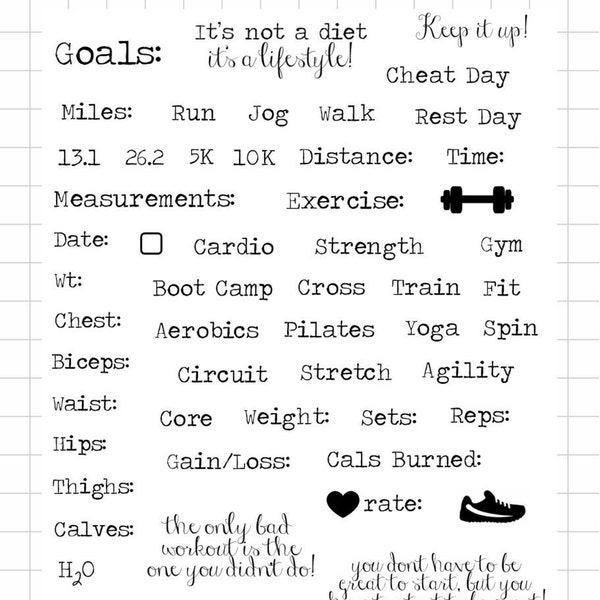 Goals:
It's not a diet
it's a lifestyle!
Keep it up!
Cheat Day
Miles: Run Jog Walk Rest Day
13.1 26.2 5K 10K Distance: Time:
Measurements: Exercise:
Date: Cardio Strength Gym
Wt: Boot Camp Cross Train Fit
Chest: Aerobics Pilates Yoga Spin
Biceps: Circuit Stretch Agility
Waist: Core Weight: Sets: Reps:
Hips: Gain/Loss: Cals Burned:
Thighs: rate:
Calves:
H2O
the only bad
workout is the
one you didn't do!
you dont have to be
great to start, but you